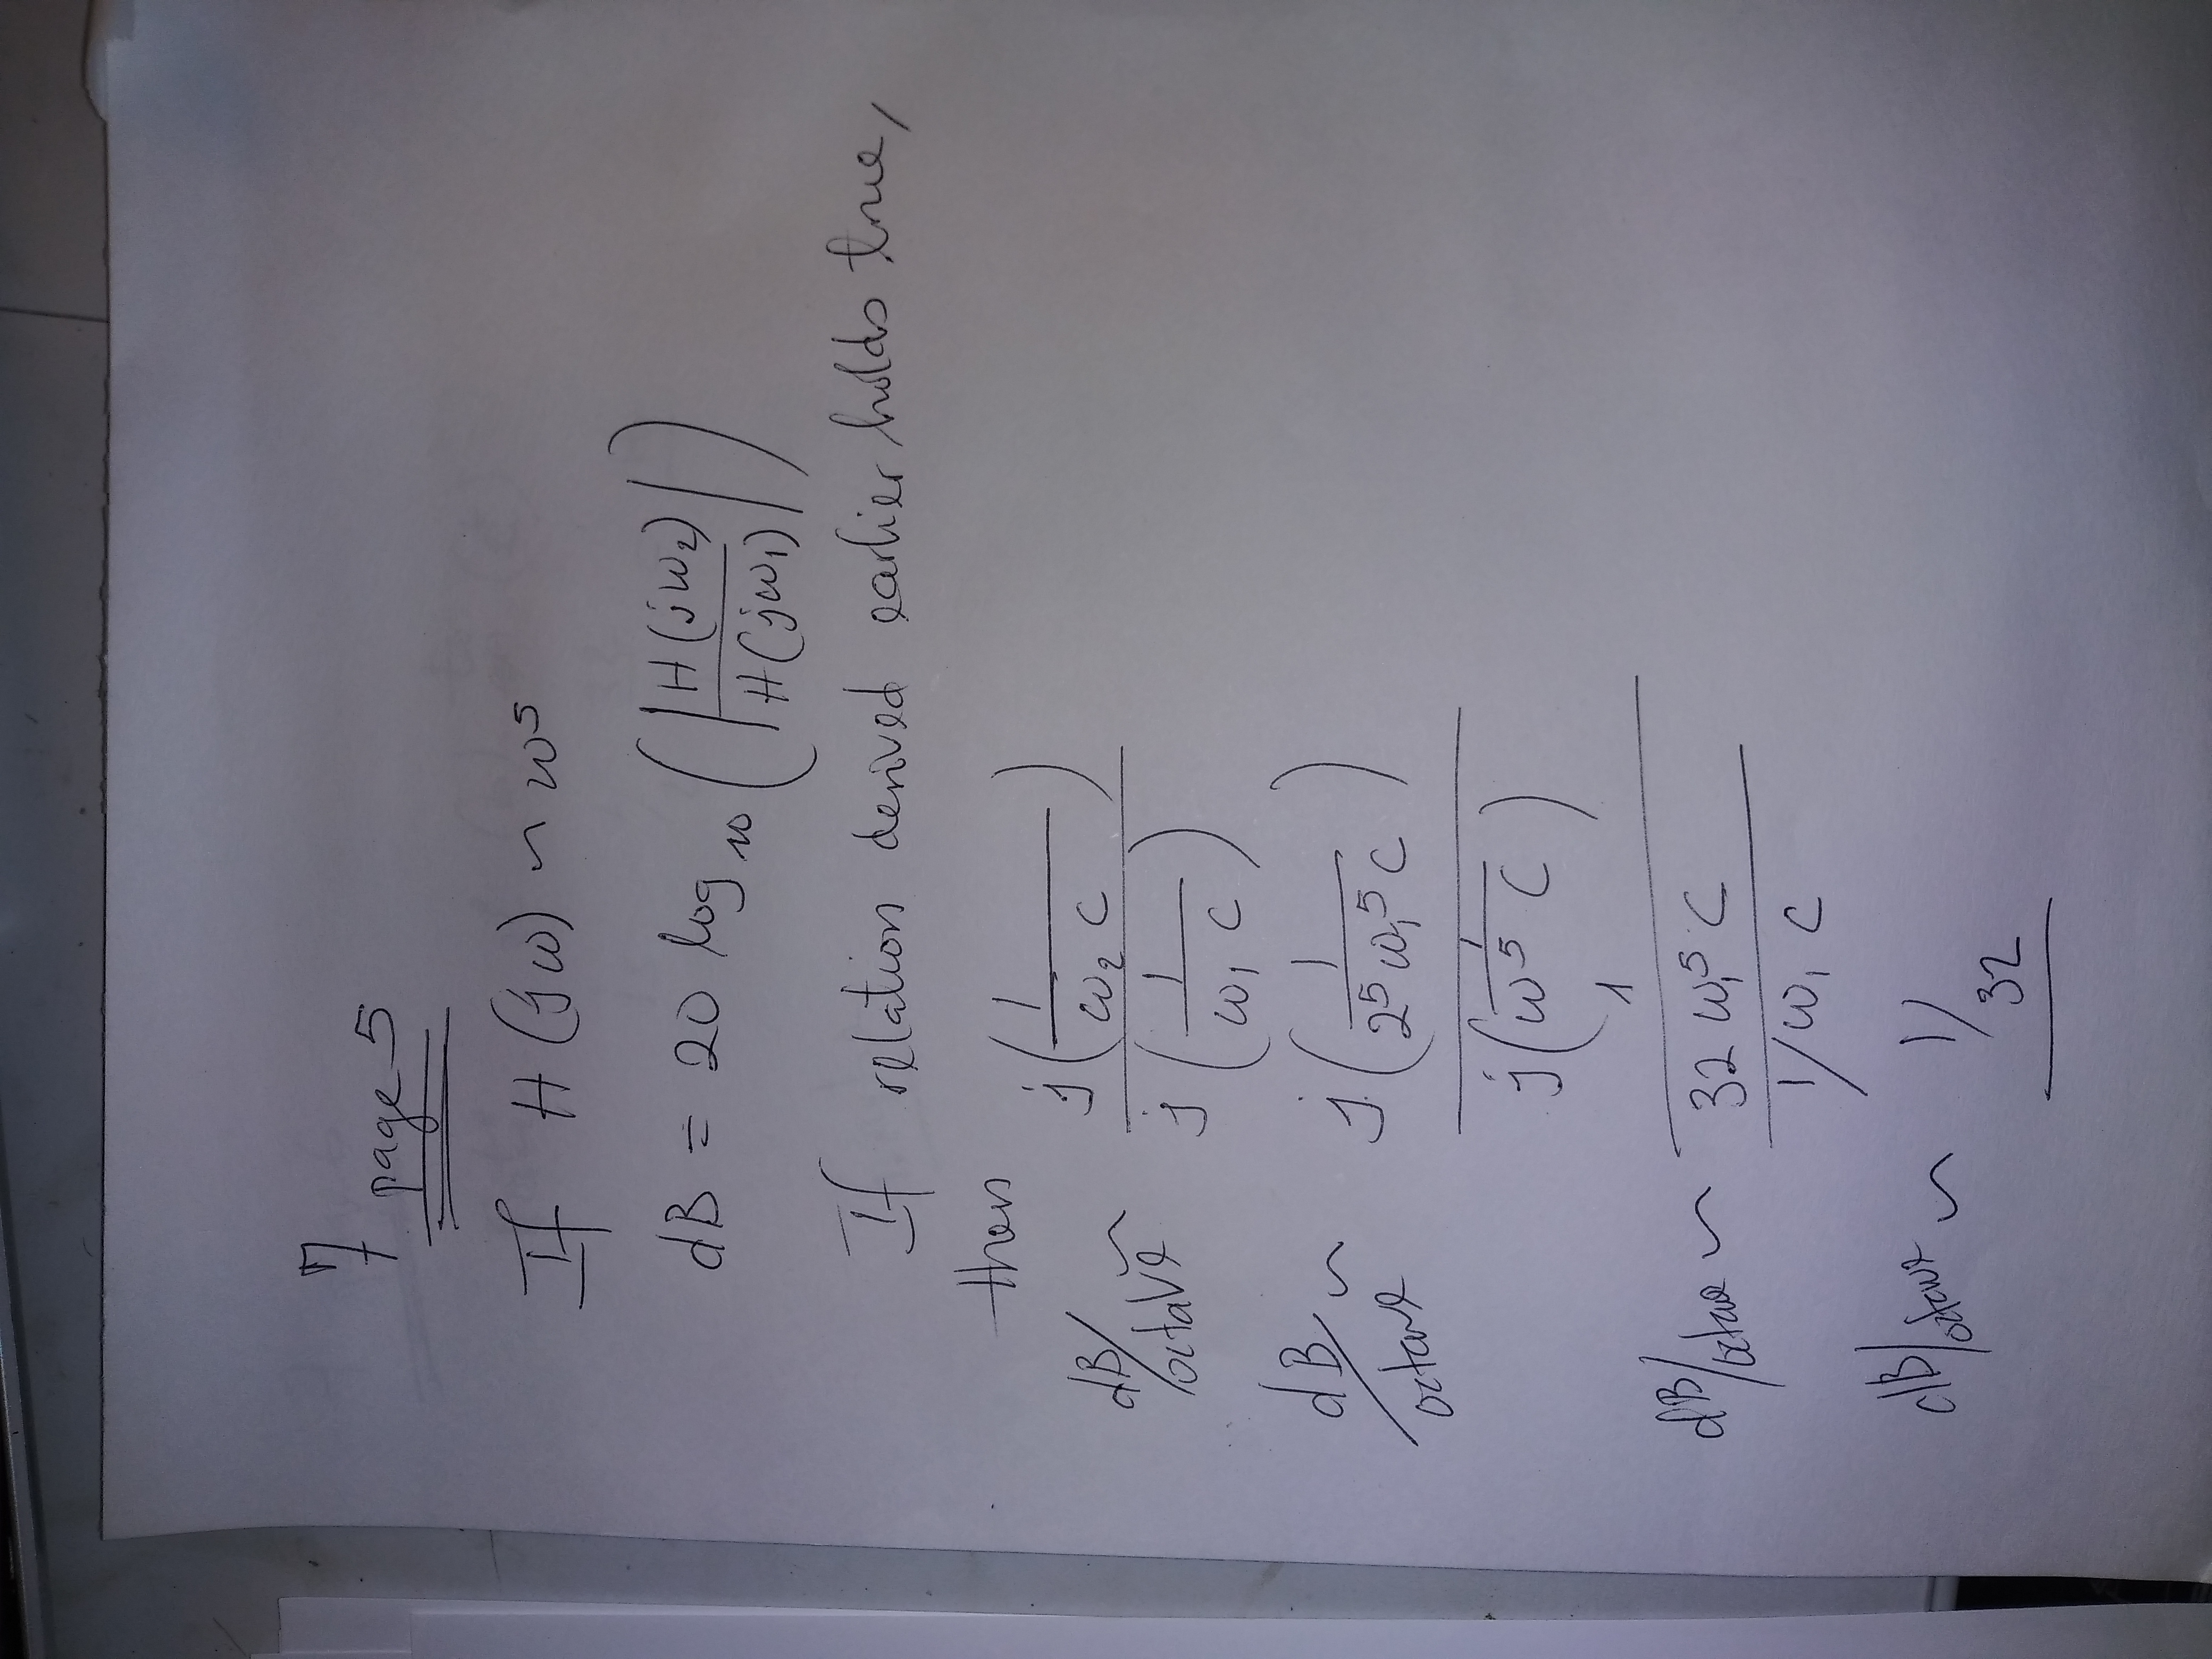 7 page 5
If H(jω) ~ ω⁵
dB = 20 log₁₀ (|H(jω₂) / H(jω₁)|)
If relation derived earlier holds true,
then
dB/octave ~ j(1 / ω₂ C) / j(1 / ω₁ C)
dB/octave ~ j(1 / 2⁵ ω₁⁵ C) / j(1 / ω⁵ C)
dB/octave ~ (1 / 32 ω₁⁵ C) / (1/ω₁ C)
dB/octave ~ 1/32